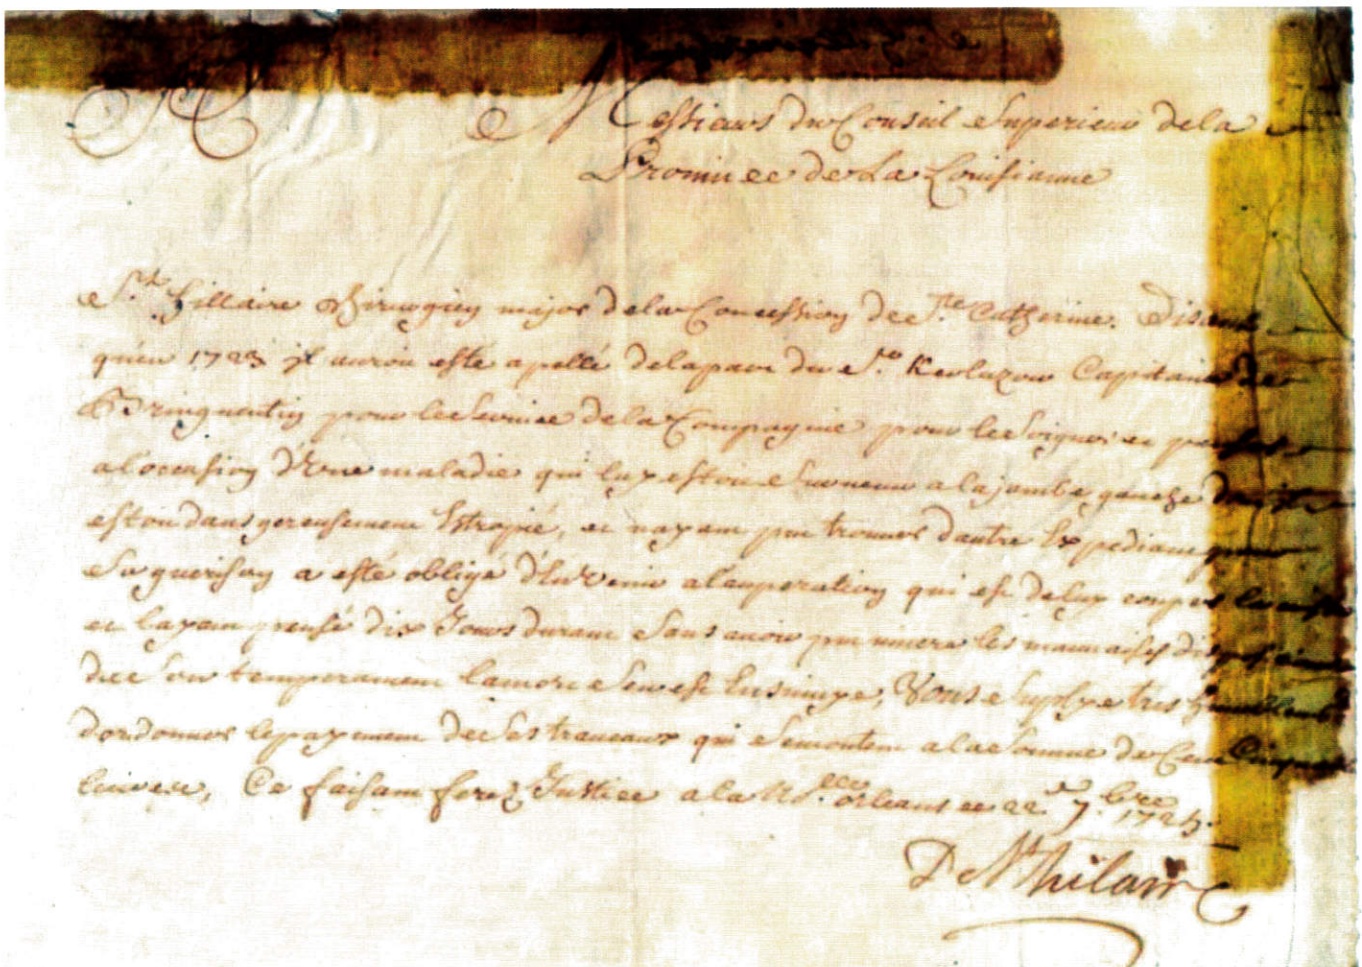 Messieurs du Conseil Superieur de la
Province de La Louisianne
St. hillaire Chirurgien major de la Concession de Ste. Catherine. Disant
qu'en 1723 il auroit esté apellé de la part du Sr. Kerlazou Capitaine de
pour le Service de la Compagnie pour le Soigner et penser
a l'occasion d'Une maladie qui luy estoit Survenue a la jambe gauche dont il
estoit dangereusement Estropié, et n'ayant pu trouver d'autre Expediant pour
Sa guerison a esté obligé d'En Venir a l'euperation qui est de luy couper la
et l'ayant pensé dix Jours durant Sans avoir pu vincre les mauvaises dispositions
de Son temperament la mort S'en est Ensuivye, Vous Suplye tres humblement
d'ordonner le payement de Ses traveaux qui Se montent a la Somme de Cent Cinquante
livres, Ce faisant ferez Justice a la Nlle. orleans ce 22e. 7bre 1725.
De St hilaire